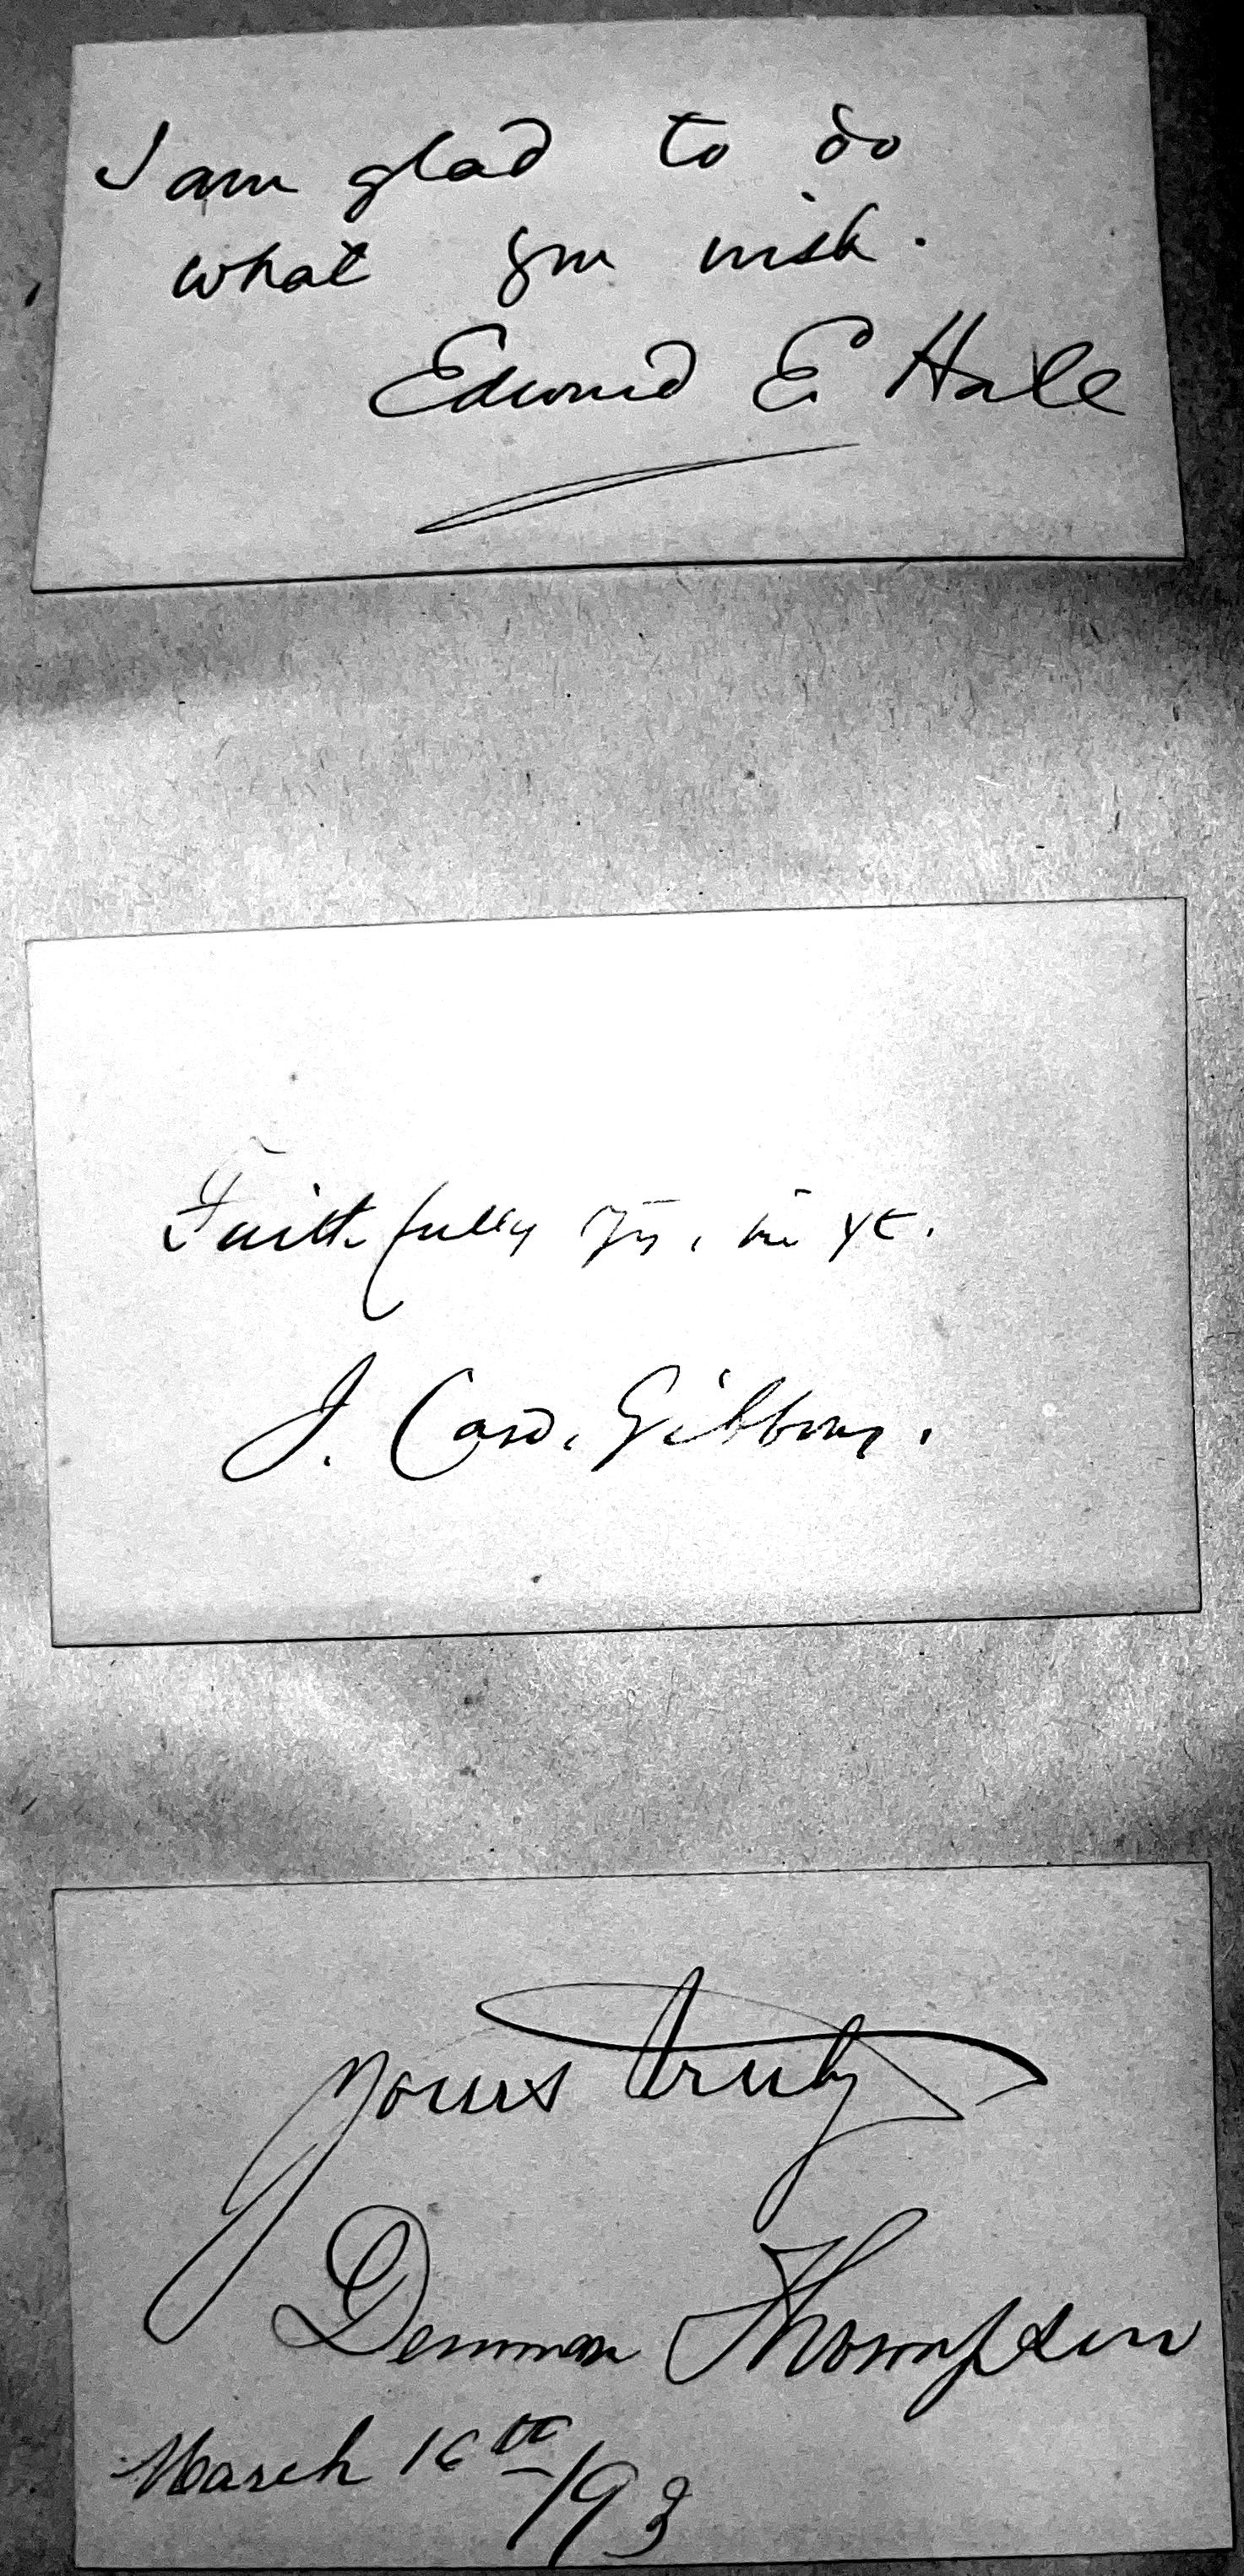 I am glad to do
what you wish.
Edward E Hale
Faithfully Yrs, in Xt.
J. Card. Gibbons.
Yours truly
Denman Thompson
March 16th /93